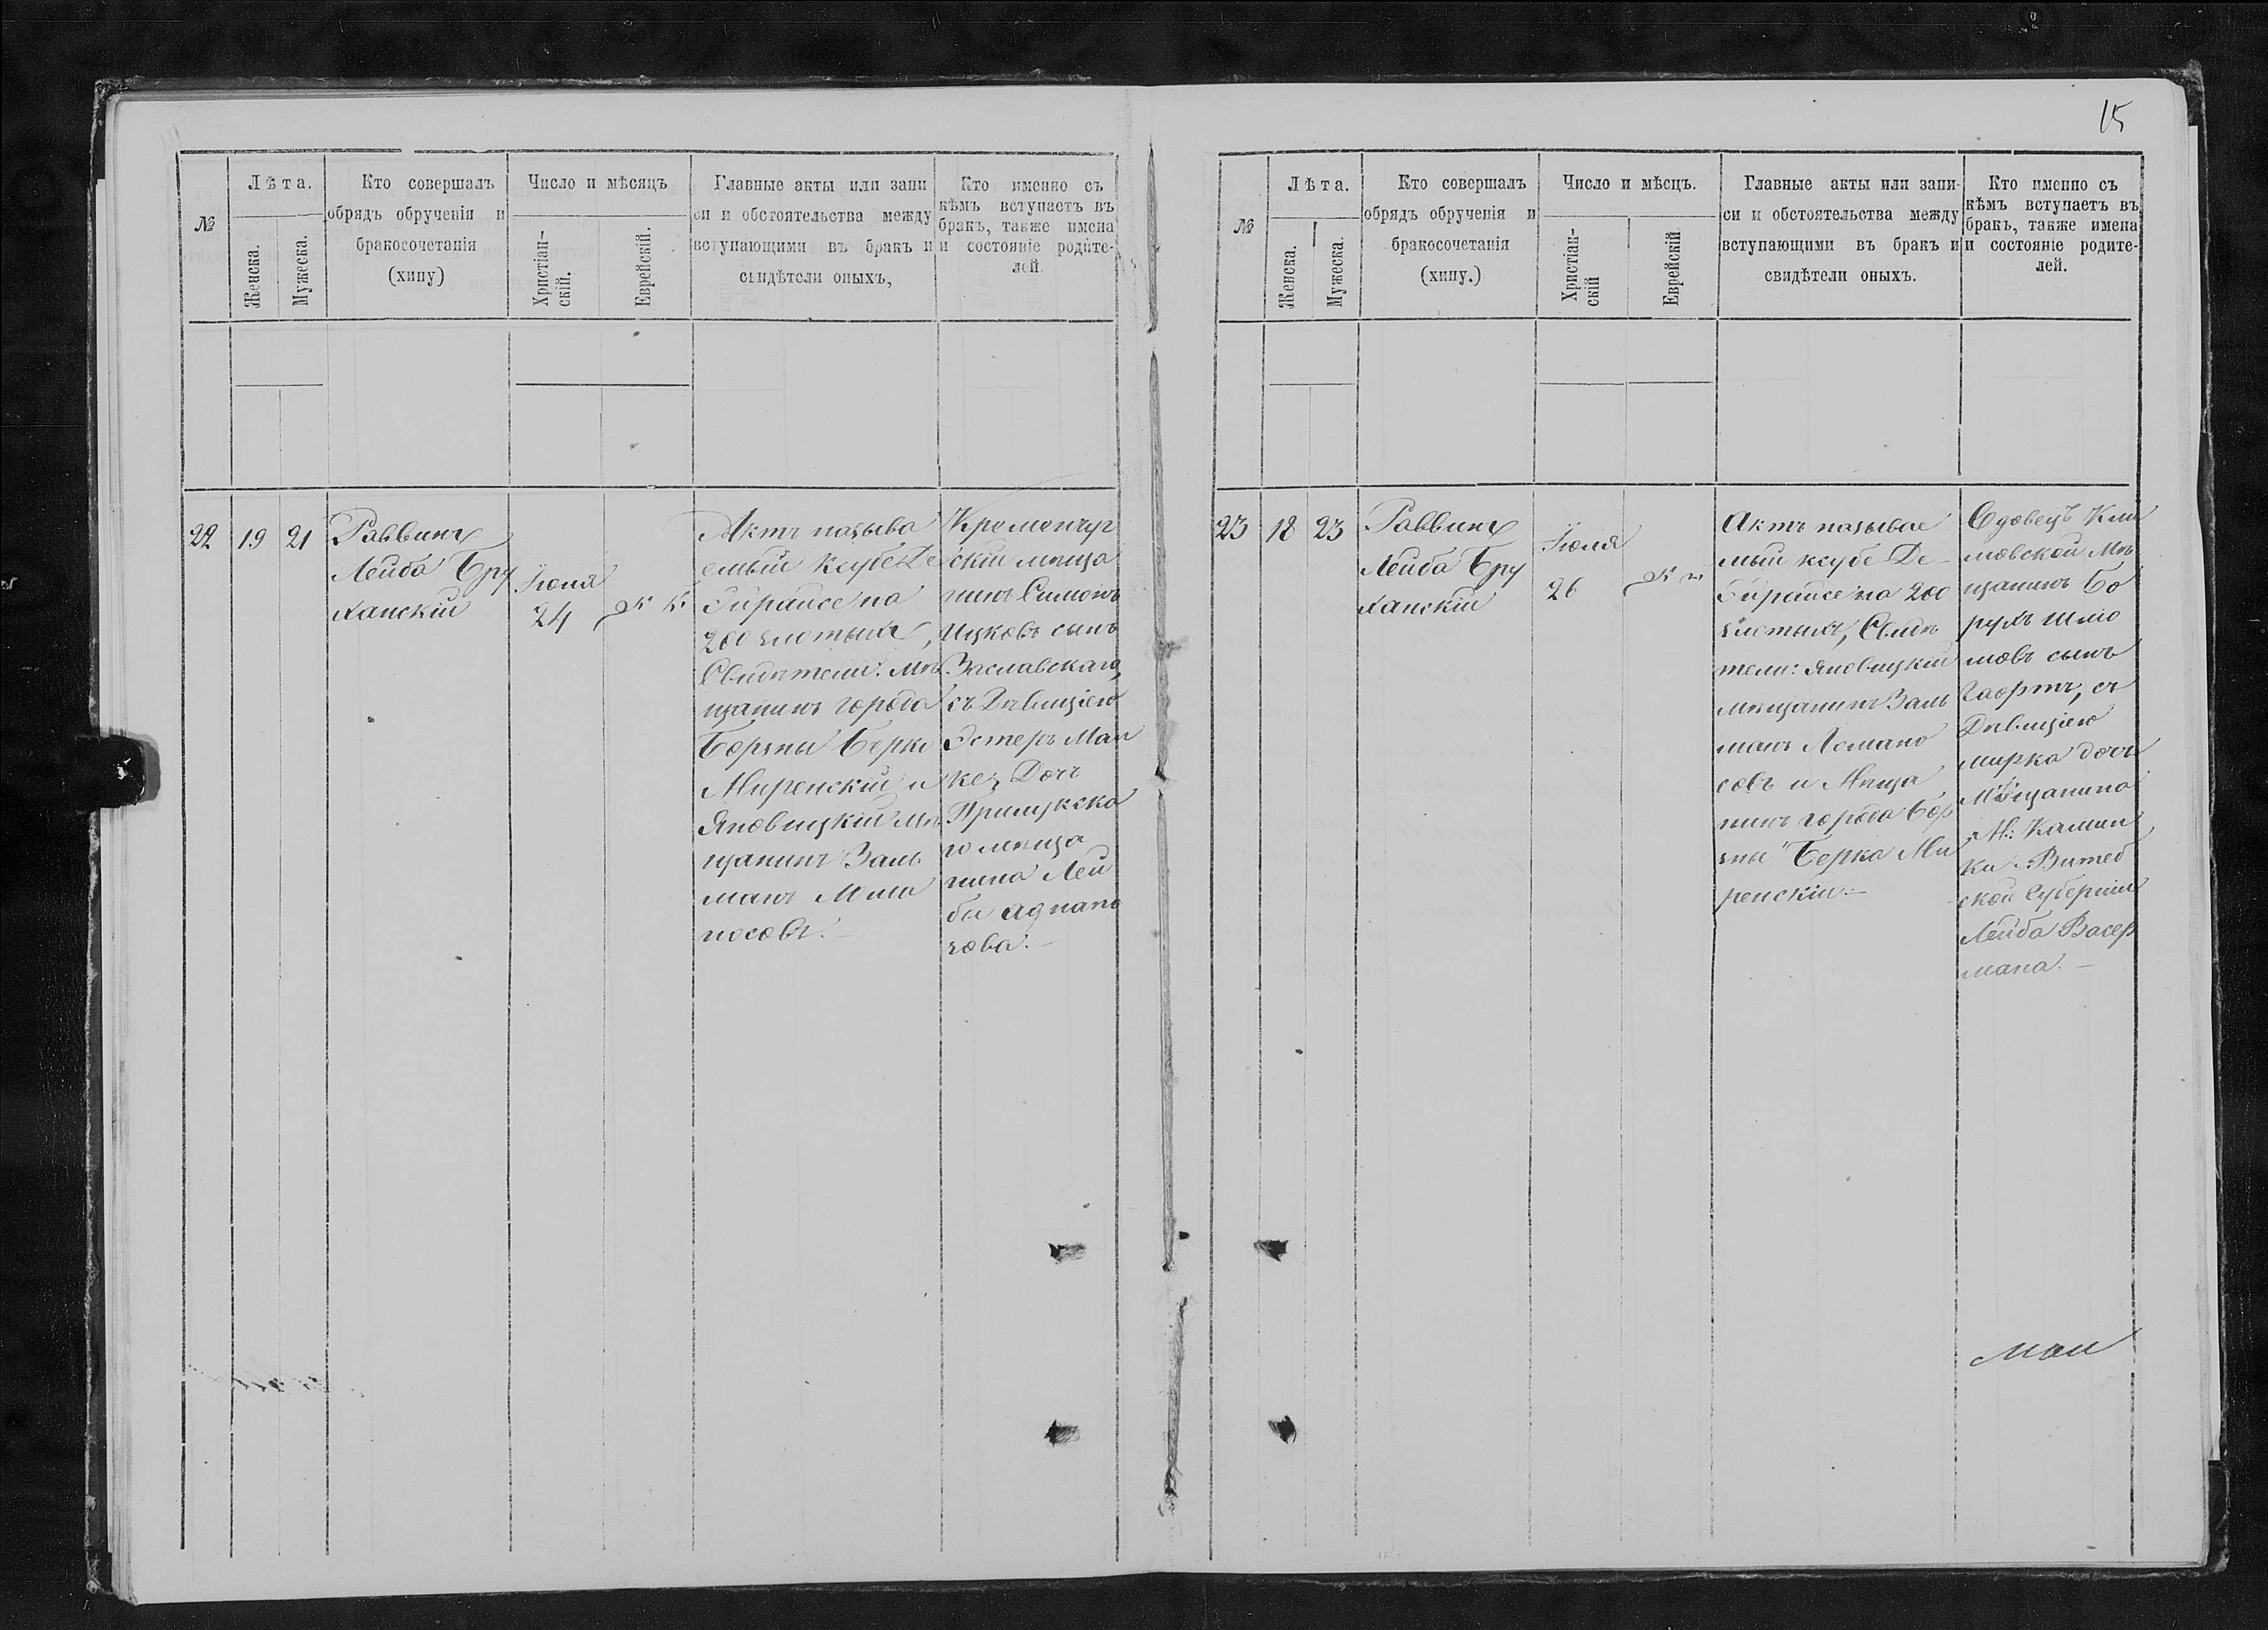 15
№
Лѣта.
Женска.
Мужеска.
Кто совершалъ
обрядъ обрученія и
бракосочетанія
(хипу)
Число и мѣсяцъ
Христіан-
скій.
Еврейскій.
Главные акты или запи
си и обстоятельства между
вступающими въ бракъ и
свидѣтели оныхъ,
Кто именно съ
кѣмъ вступаетъ въ
бракъ, также имена
и состояніе родите-
лей.
22
19
21
Раввинъ
Лейба Бру
ханскій
Іюля
24
Актъ называ
емый ксубе Де
Гирайсе на
200 злотыхъ,
Свидѣтели: Мѣ
щанинъ города
Борзны Берко
Миренскій и
Яновицкій Мѣ
щанинъ Заль
манъ
носовъ.
Кременчуг
скій мѣща
нинъ Симонъ
Ицковъ сынъ
Заславскаго,
съ Дѣвицею
Эстеръ Мал
ке, Дочь
Прилукска
го мѣща
нина Лей
бы
зова.
№
Лѣта.
Женска.
Мужеска.
Кто совершалъ
обрядъ обрученія и
бракосочетанія
(хипу.)
Число и мѣсцъ.
Христіан-
скій
Еврейскій
Главные акты или запи-
си и обстоятельства между
вступающими въ бракъ и
свидѣтели оныхъ.
Кто именно съ
кѣмъ вступаетъ въ
бракъ, также имена
и состояніе родите-
лей.
23
18
23
Раввинъ
Лейба Бру
ханскій
Іюля
26
Актъ называе
мый ксубе Де
Гирайсе на 200
злотыхъ, Свидѣ
тели: Яновицкій
Мѣщанинъ Заль
манъ Ломано
совъ и Мѣща
нинъ города Бор
зны Берка Ми
ренскій.
Вдовецъ Кли
мовской Мѣ
щанинъ Бо
рухъ Шлю
мовъ сынъ
съ
Дѣвицею
Мирка дочь
Мѣщанина
М: Камин
ки Витеб
ской Губерніи
Лейба Васер
мана.